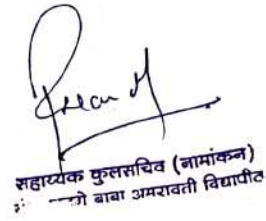 सहाय्यक कुलसचिव (नामांकन)
गे बाबा अमरावती विद्यापीठ